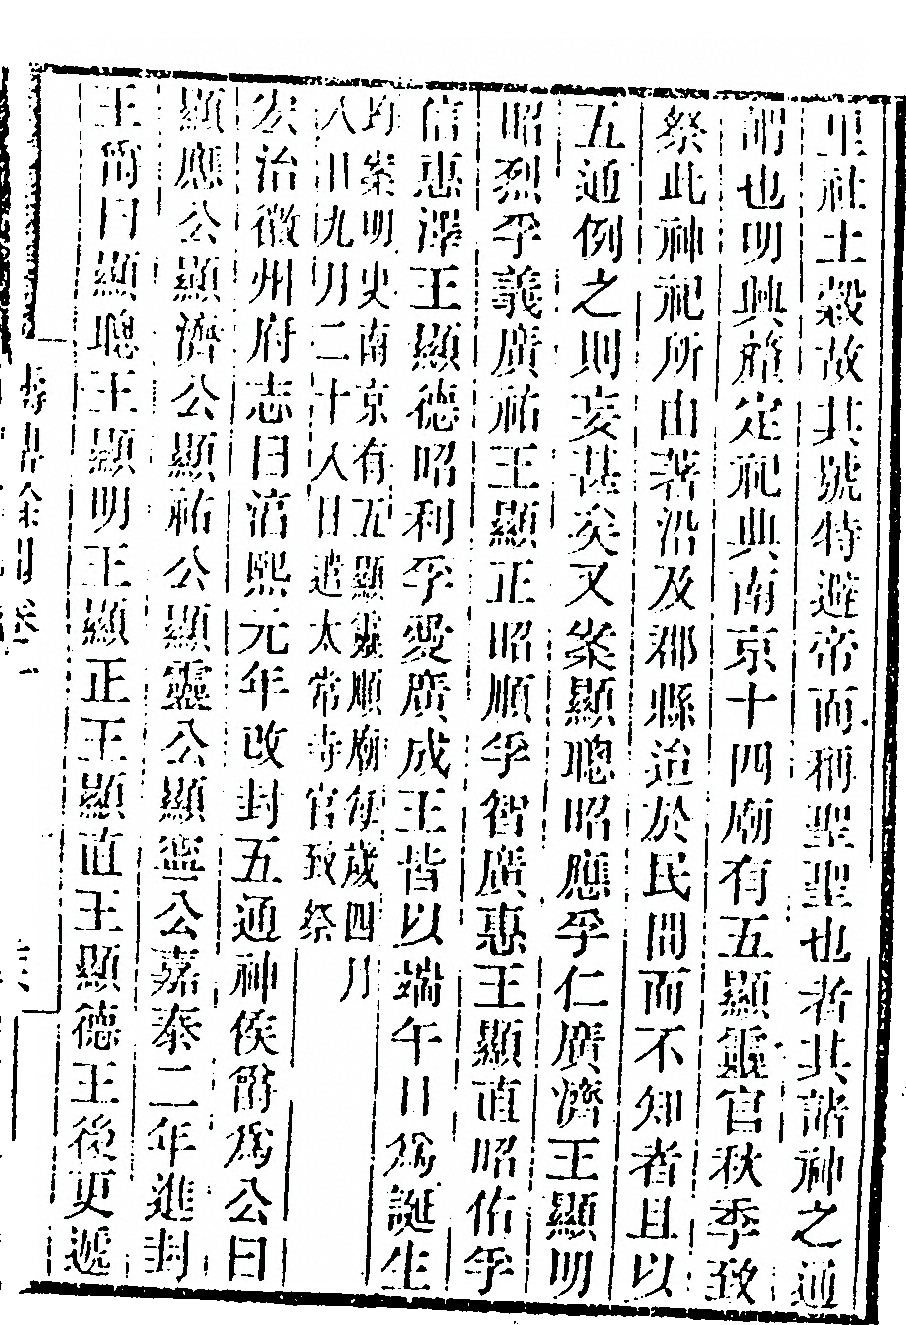 里社土穀故其號特避帝而稱聖聖也者其諸神之通
謂也明興釐定祀典南京十四廟有五顯靈官秋季致
祭此神祀所由著沿及郡縣迨於民間而不知者且以
五通例之則妄甚矣又案顯聰昭應孚仁廣濟王顯明
昭烈孚義廣祐王顯正昭順孚智廣惠王顯直昭佑孚
信惠澤王顯德昭利孚愛廣成王皆以端午日爲誕生
均案明史南京有五顯靈順廟每歲四月
八日九月二十八日遣太常寺官致祭
宏治徽州府志曰淳熙元年改封五通神侯爵爲公曰
顯應公顯濟公顯祐公顯靈公顯寧公嘉泰二年進封
王爵曰顯聰王顯明王顯正王顯直王顯德王後更遞